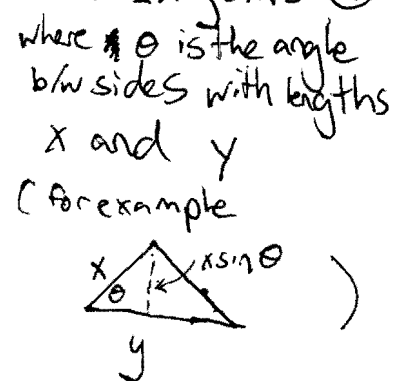 where θ is the angle
b/w sides with lengths
x and y
(for example
x
θ
x sin θ
)
y